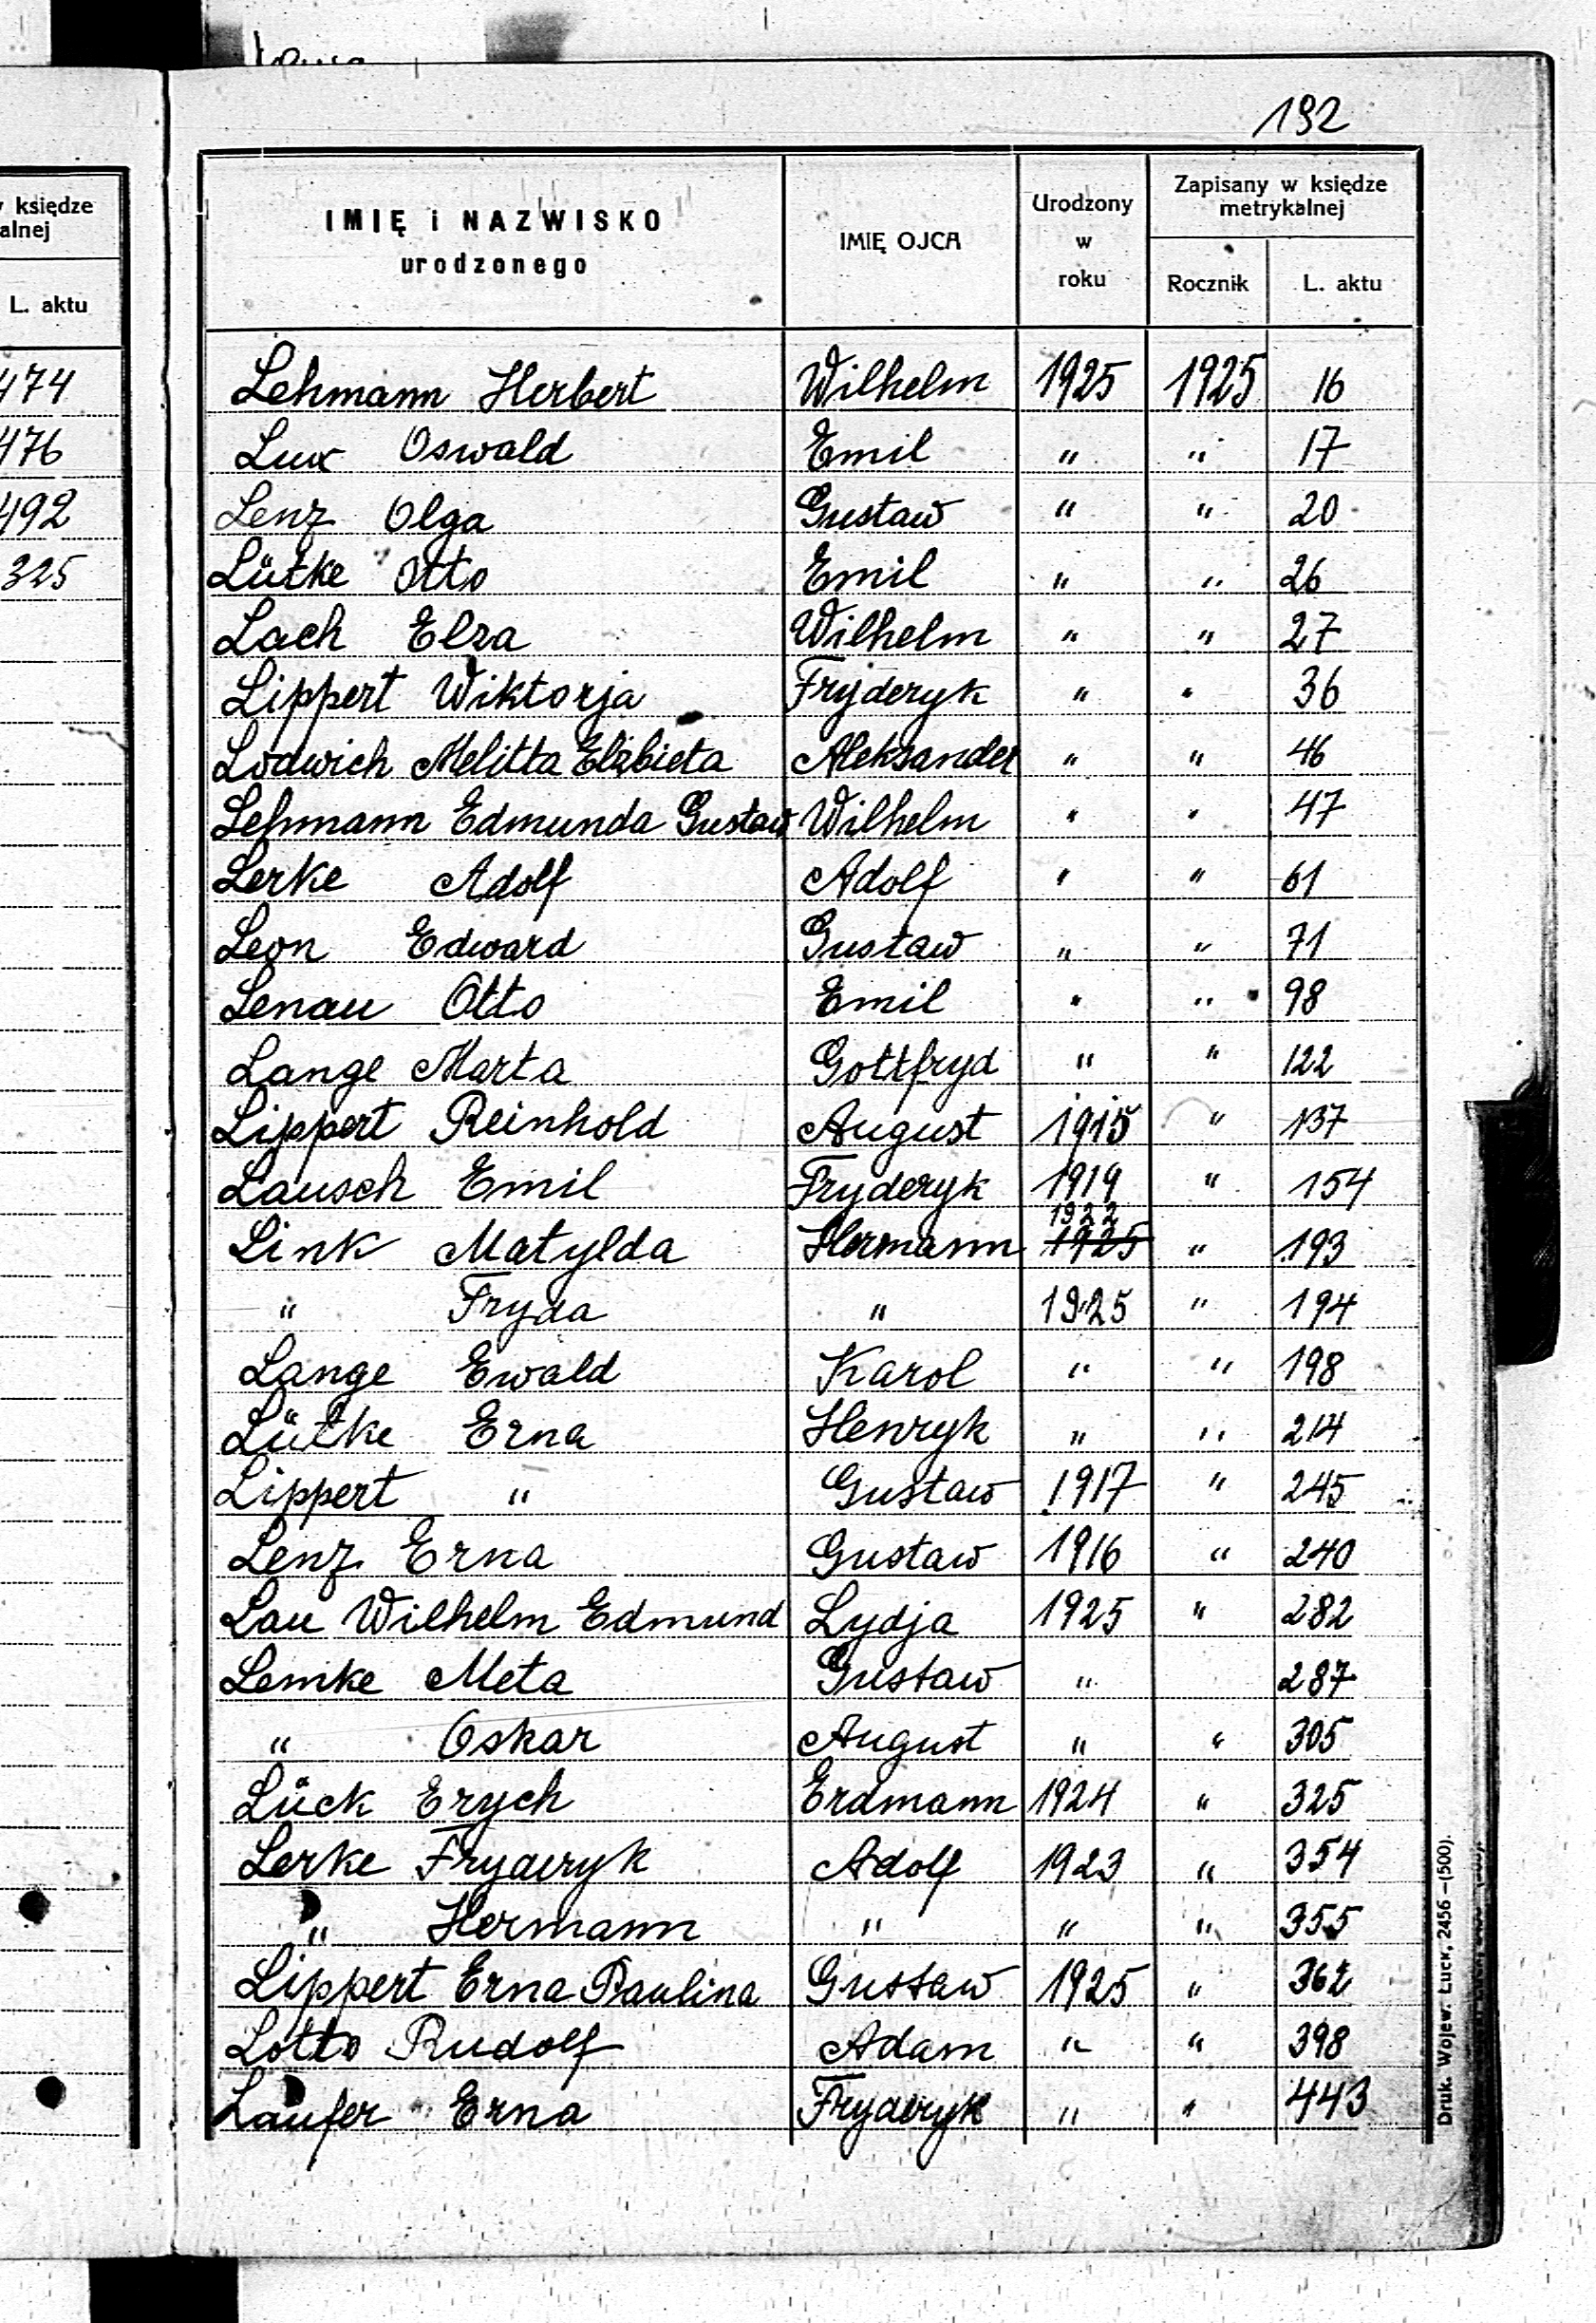 192
w księdze
alnej
L. aktu
474
476
492
325
IMIĘ i NAZWISKO
urodzonego
IMIĘ OJCA
Urodzony
w
roku
Zapisany w księdze
metrykalnej
Rocznik
L. aktu
Lehmann Herbert Wilhelm 1925 1925 16
Lux Oswald Emil " " 17
Lenz Olga Gustaw " " 20
Lütke Otto Emil " " 26
Lach Elza Wilhelm " " 27
Lippert Wiktorja Fryderyk " " 36
Lodwich Melitta Elżbieta Aleksander " " 46
Lehmann Edmunda Gustaw Wilhelm " " 47
Lerke Adolf Adolf " " 61
Leon Edward Gustaw " " 71
Lenau Otto Emil " " 98
Lange Marta Gottfryd " " 122
Lippert Reinhold August 1915 " 137
Lausch Emil Fryderyk 1919 " 154
Link Matylda Hermann 1922 1925 " 193
" Fryda " 1925 " 194
Lange Ewald Karol " " 198
Lütke Erna Henryk " " 214
Lippert " Gustaw 1917 " 245
Lenz Erna Gustaw 1916 " 240
Lau Wilhelm Edmund Lydja 1925 " 282
Lemke Meta Gustaw " 287
" Oskar August " " 305
Lück Erych Erdmann 1924 " 325
Lerke Fryderyk Adolf 1923 " 354
" Hermann " " " 355
Lippert Erna Paulina Gustaw 1925 " 362
Lotto Rudolf Adam " " 398
Laufer Erna Fryderyk " " 443
Druk. Wojew. Łuck, 2456 – (500).